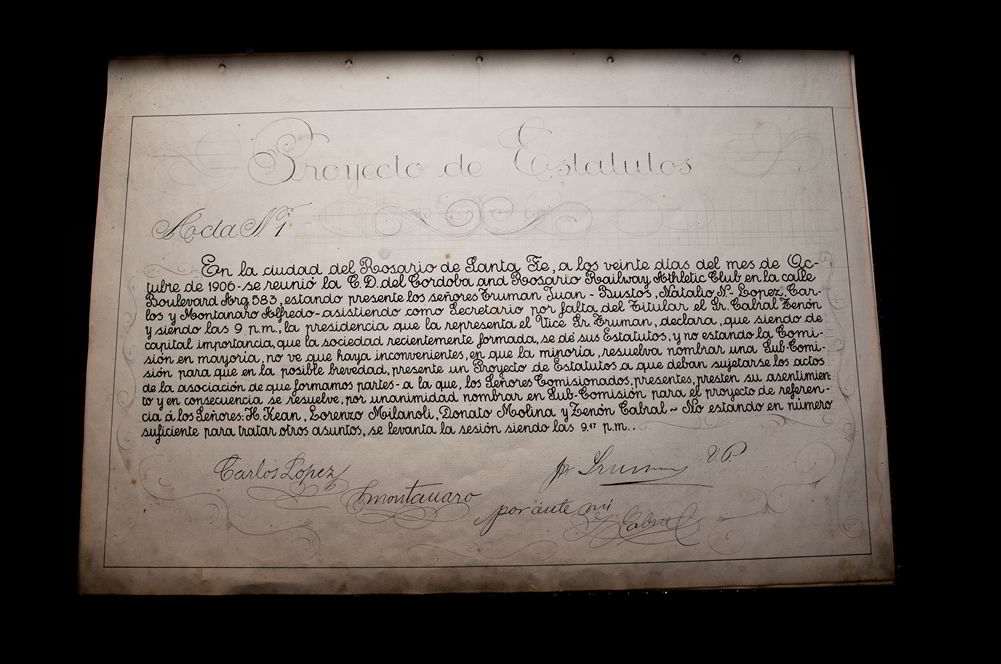 Proyecto de Estatutos
Acta Nº 1
En la ciudad del Rosario de Santa Fe, a los veinte días del mes de Oc-
tubre de 1906-se reunió la C.D. del Cordoba and Rosario Railway Athletic Club en la calle
Boulevard Arg. 583, estando presente los señores Truman Juan - Bustos, Natalio N- Lopez, Car-
los y Montanaro Alfredo-asistiendo como Secretario por falta del Titular el Sr. Cabral Zenón
y siendo las 9 p.m., la presidencia que la representa el Vice Sr. Truman, declara, que siendo de
capital importancia, que la sociedad recientemente formada, se dé sus Estatutos, y no estando la Comi-
sión en mayoria, no ve que haya inconvenientes, en que la minoria, resuelva nombrar una Sub-Comi-
sión para que en la posible brevedad, presente un Proyecto de Estatutos a que deban sujetarse los actos
de la asociación de que formamos partes- a la que, los Señores Comisionados, presentes, presten su asentimien-
to y en consecuencia se resuelve, por unanimidad nombrar en Sub-Comisión para el proyecto de referen-
cia á los Señores: H. Kean, Lorenzo Milanoli, Donato Molina y Zenón Cabral ~ No estando en número
suficiente para tratar otros asuntos, se levanta la sesión siendo las 9.17 p.m..
Carlos Lopez
Jn Truman V.P
Amontanaro
por ánte mi
Z Cabral